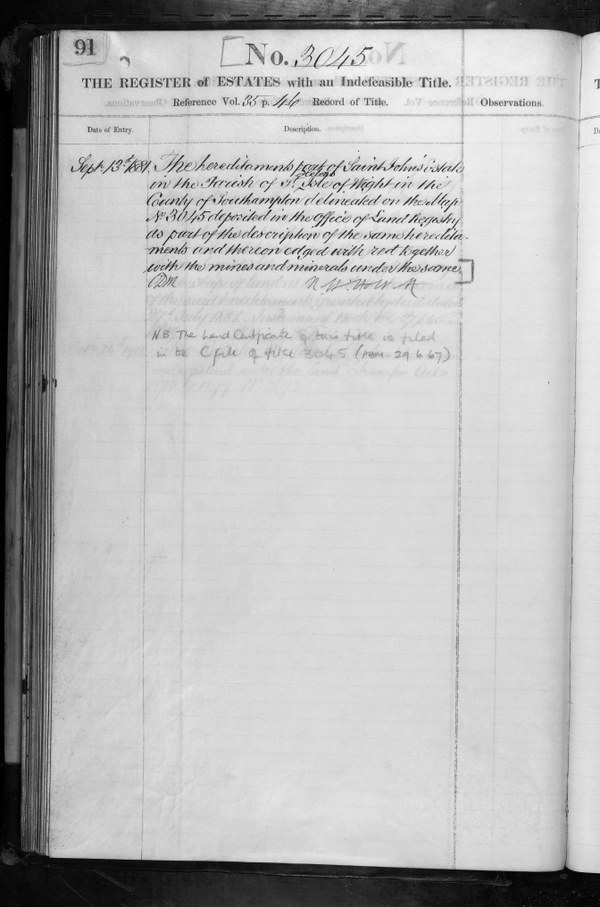 91
No. 3045
THE REGISTER of ESTATES with an Indefeasible Title.
Reference Vol. 35 p. 46 Record of Title. Observations.
Date of Entry. Description.
Sept. 13th 1881. The hereditaments part of Saint John's Estate
in the Parish of St. Helens Isle of Wight in the
County of Southampton delineated on the Map
No. 3045 deposited in the Office of Land Registry
as part of the description of the same heredita-
ments and thereon edged with red together
with the mines and minerals under the same
N.B. The Land Certificate of this title is filed
in the C file of title 3045 (29.6.67)